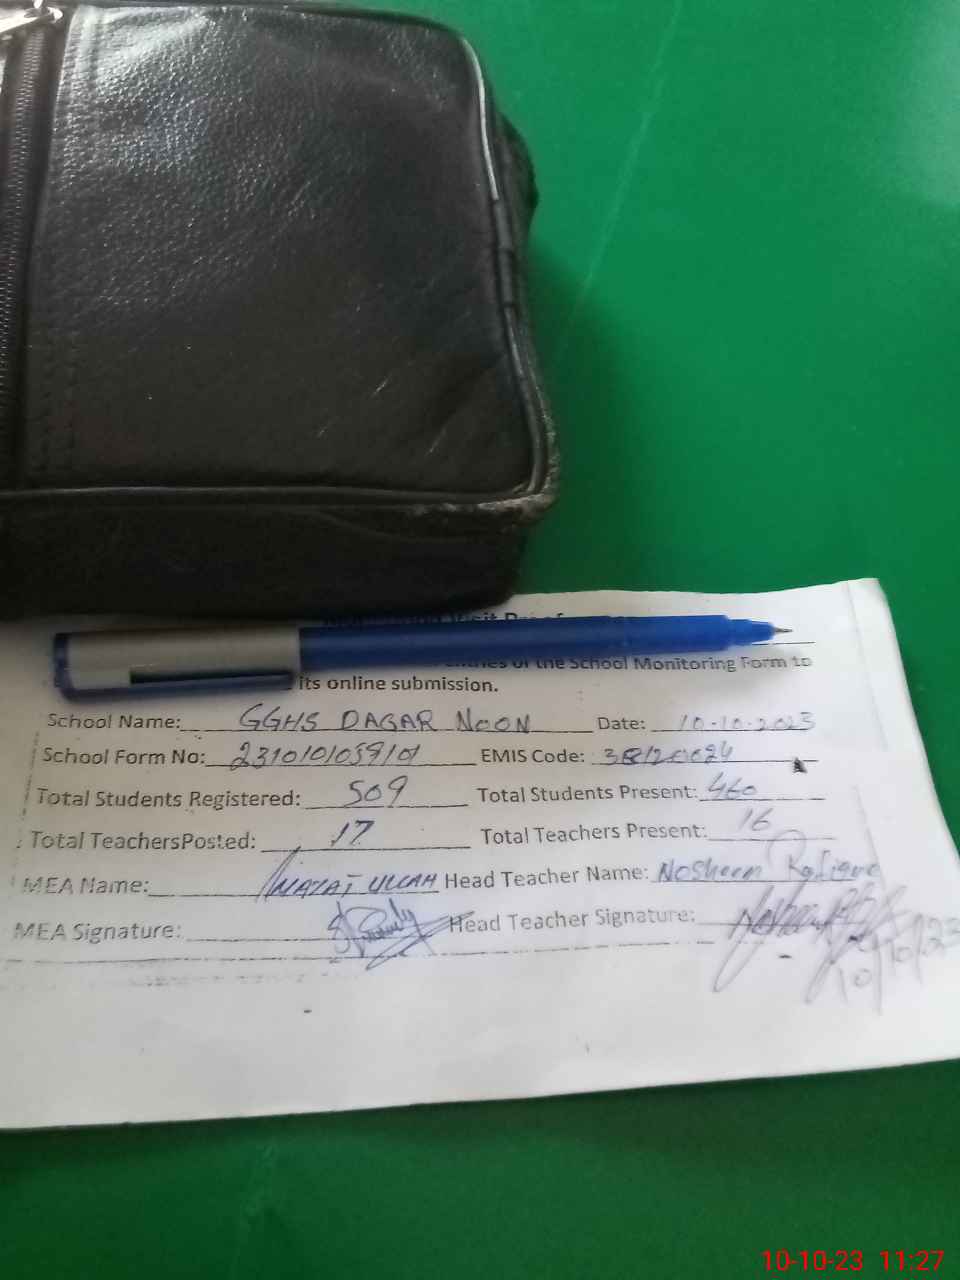 Visit Proof
entries of the School Monitoring Form to
its online submission.
School Name: GGHS DAGAR NOON Date: 10-10-2023
School Form No: 2310101059101 EMIS Code:
Total Students Registered: 509 Total Students Present: 460
Total TeachersPosted: 17 Total Teachers Present: 16
MEA Name: INAZAT ULLAH Head Teacher Name: Nosheen Rafique
MEA Signature: Head Teacher Signature:
10/10/23
10-10-23 11:27